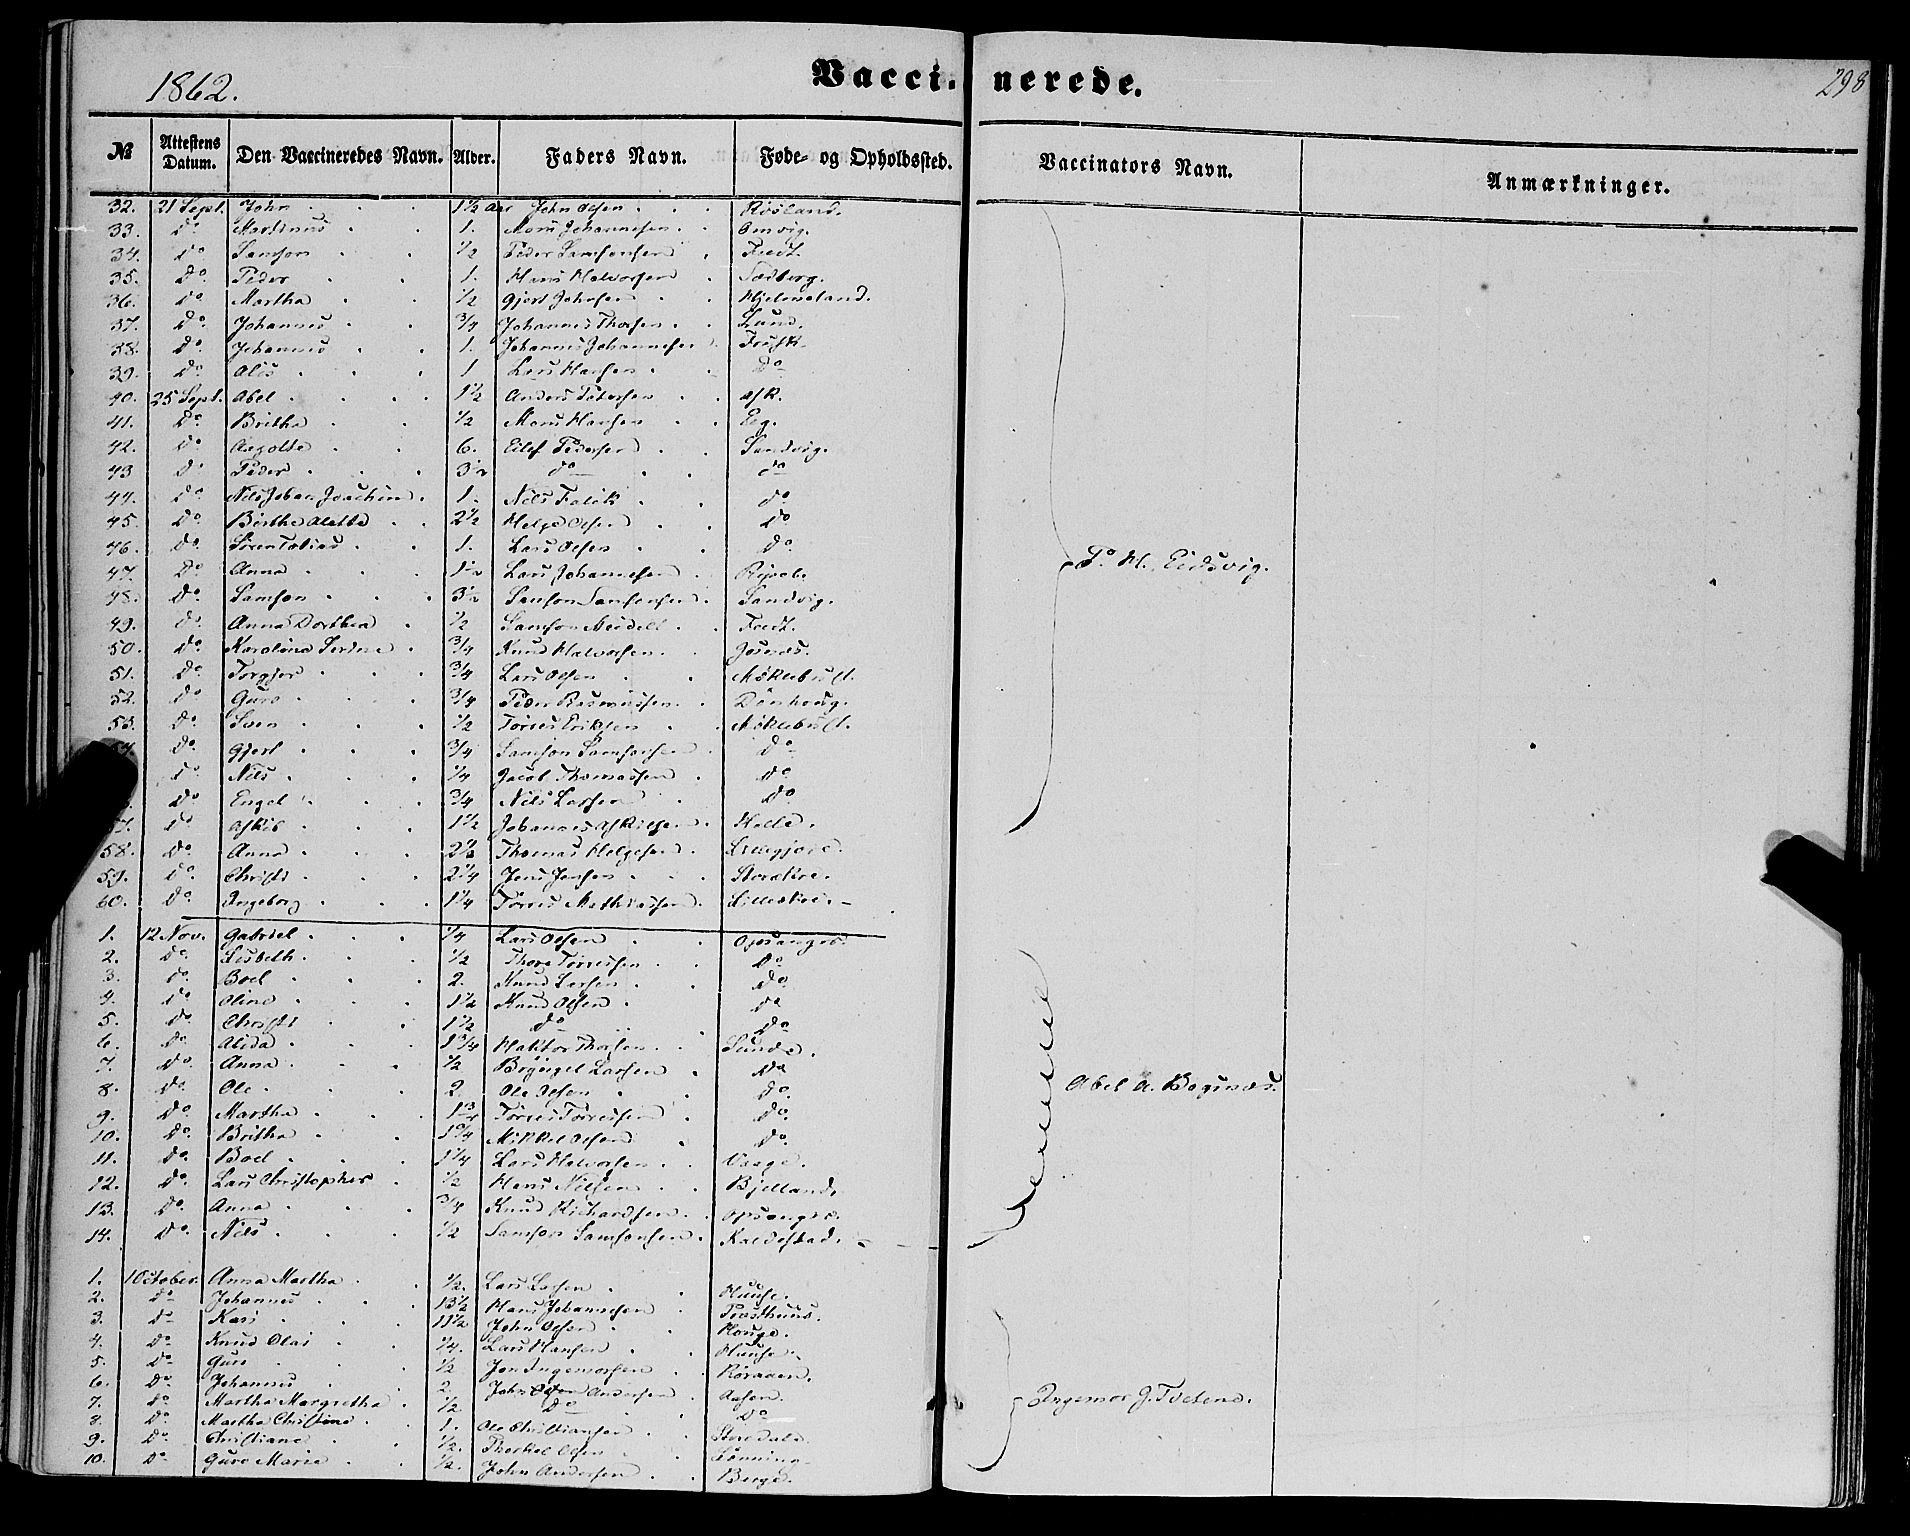 1862.
Vaccinerede.
298
№ Attestens Datum. Den Vaccineredes Navn. Alder. Faders Navn. Føde- og Opholdssted. Vaccinators Navn. Anmærkninger.
32. 21 Sept. John 1½ Aar John Olsen Røsland.
33. Do. Martinus 1. Mons Johannesen Omvig.
34. Do. Samson ½ Peder Samsonsen
35. Do. Peder 1. Hans Halvorsen
36. Do. Martha ½ Gjert Johnsen Hjelmeland.
37. Do. Johannes ¾ Johannes Thorsen Lund.
38. Do. Johannes 1. Johannes Johannesen
39. Do. Alis 1 Lars Hansen Do
40. 25 Sept. Abel 1½ Anders Pedersen Ask.
41. Do. Britha ½ Mons Hansen Eeg.
42. Do. 6. Eilef Pedersen Sandvig.
43 Do. Peder 3½ do do
44. Do. Nils Johan Joachim 1. Nils Falck do
45. Do. Birthe Alette 2½ Helge Olsen Do
46. Do. Søren Tobias 1. Lars Olsen Do.
47. Do. Anna 1½ Lars Johannesen
48. Do. Samson 3½ Samson Samsonsen Sandvig.
49. Do. Anna Dorthea ½ Samson
50. Do. Karolina Serine ¾ Knud Halvorsen
51. Do. Torgjer ¾ Lars Olsen Møklebust.
52. Do. Guro ¾ Peder Rasmussen Dønhoug.
53. Do. Sven ½ Tørres Eriksen Møklebust.
54. Do. Gjert ¾ Samson Samsonsen Do
Do. Nils ¼ Jacob Thomassen Do
Do. Engel ¾ Nils Larsen Do
57. Do. Askil 1½ Johannes Askilsen Helle.
58. Do. Anna 2½ Thomas Helgesen
59. Do. Christi 2¼ Jens Jensen
60. Do. Ingeborg 1¼ Tørres Mathiassen
P. H. Eidsvig.
1. 12 Nov. Gabriel ¼ Lars Olsen Opsanger.
2. Do. Lisbeth ½ Thore Tørresen Do.
3. Do. Boel 2. Knud Larsen Do
4. Do. Oline 1½ Knud Olsen do
5. Do. Christi 1½ do Do
6. Do. Alida 1¾ Haktor Thorsen Sunde.
7. Do. Anna ½ Brynjel Larsen Do
8. Do. Ole 2. Ole Olsen Do.
9. Do. Martha 1¾ Tørres Tørresen Do.
10. Do. Britha 1¾ Mikkel Olsen Do.
11. Do. Boel 1¼ Lars Halvorsen Vaage.
12. Do. Lars Christopher ½ Hans Nilsen Bjelland.
13. Do. Anna ¾ Knud Richardsen Opsanger.
14. Do. Nils ½ Samson Samsonsen Kaldestad.
Abel A. Bogsnæs.
1. 1 October. Anna Martha ½. Lars Larsen Huuse.
2. Do Johannes 13½ Hans Johannesen
3. Do Kari 11½ John Olsen Houge.
4. Do Knud Olai ¼. Lars Hansen Huuse.
5. Do. Guro ½ Jon Ingemorsen
6. Do Johannes 2. John Andersen Aasen.
7. Do Martha Margretha ½ Do Do
8. Do Martha Christine 1. Ole Christiansen
9. Do. Christiane ½. Thorkel Olsen
10. Do Guro Marie ½. John Andersen Berge.
Ingemor J. Tvetene.